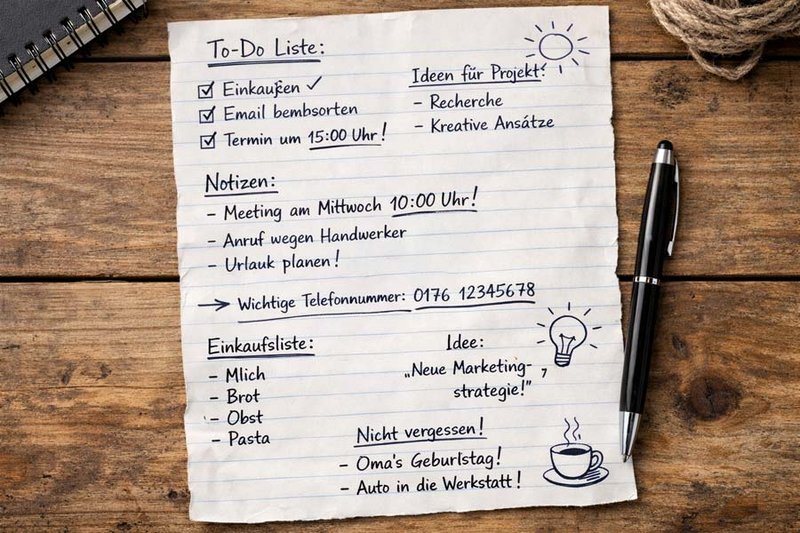 To-Do Liste:
☑ Einkaufen ✓
☑ Email bembsorten
☑ Termin um 15:00 Uhr!
Ideen für Projekt:
- Recherche
- Kreative Ansátze
Notizen:
- Meeting am Mittwoch 10:00 Uhr!
- Anruf wegen Handwerker
- Urlauk planen!
→ Wichtige Telefonnummer: 0176 12345678
Einkaufsliste:
- Mlich
- Brot
- Obst
- Pasta
Idee:
„Neue Marketing-
strategie!"
Nicht vergessen!
- Oma's Geburlstag!
- Auto in die Werkstatt!